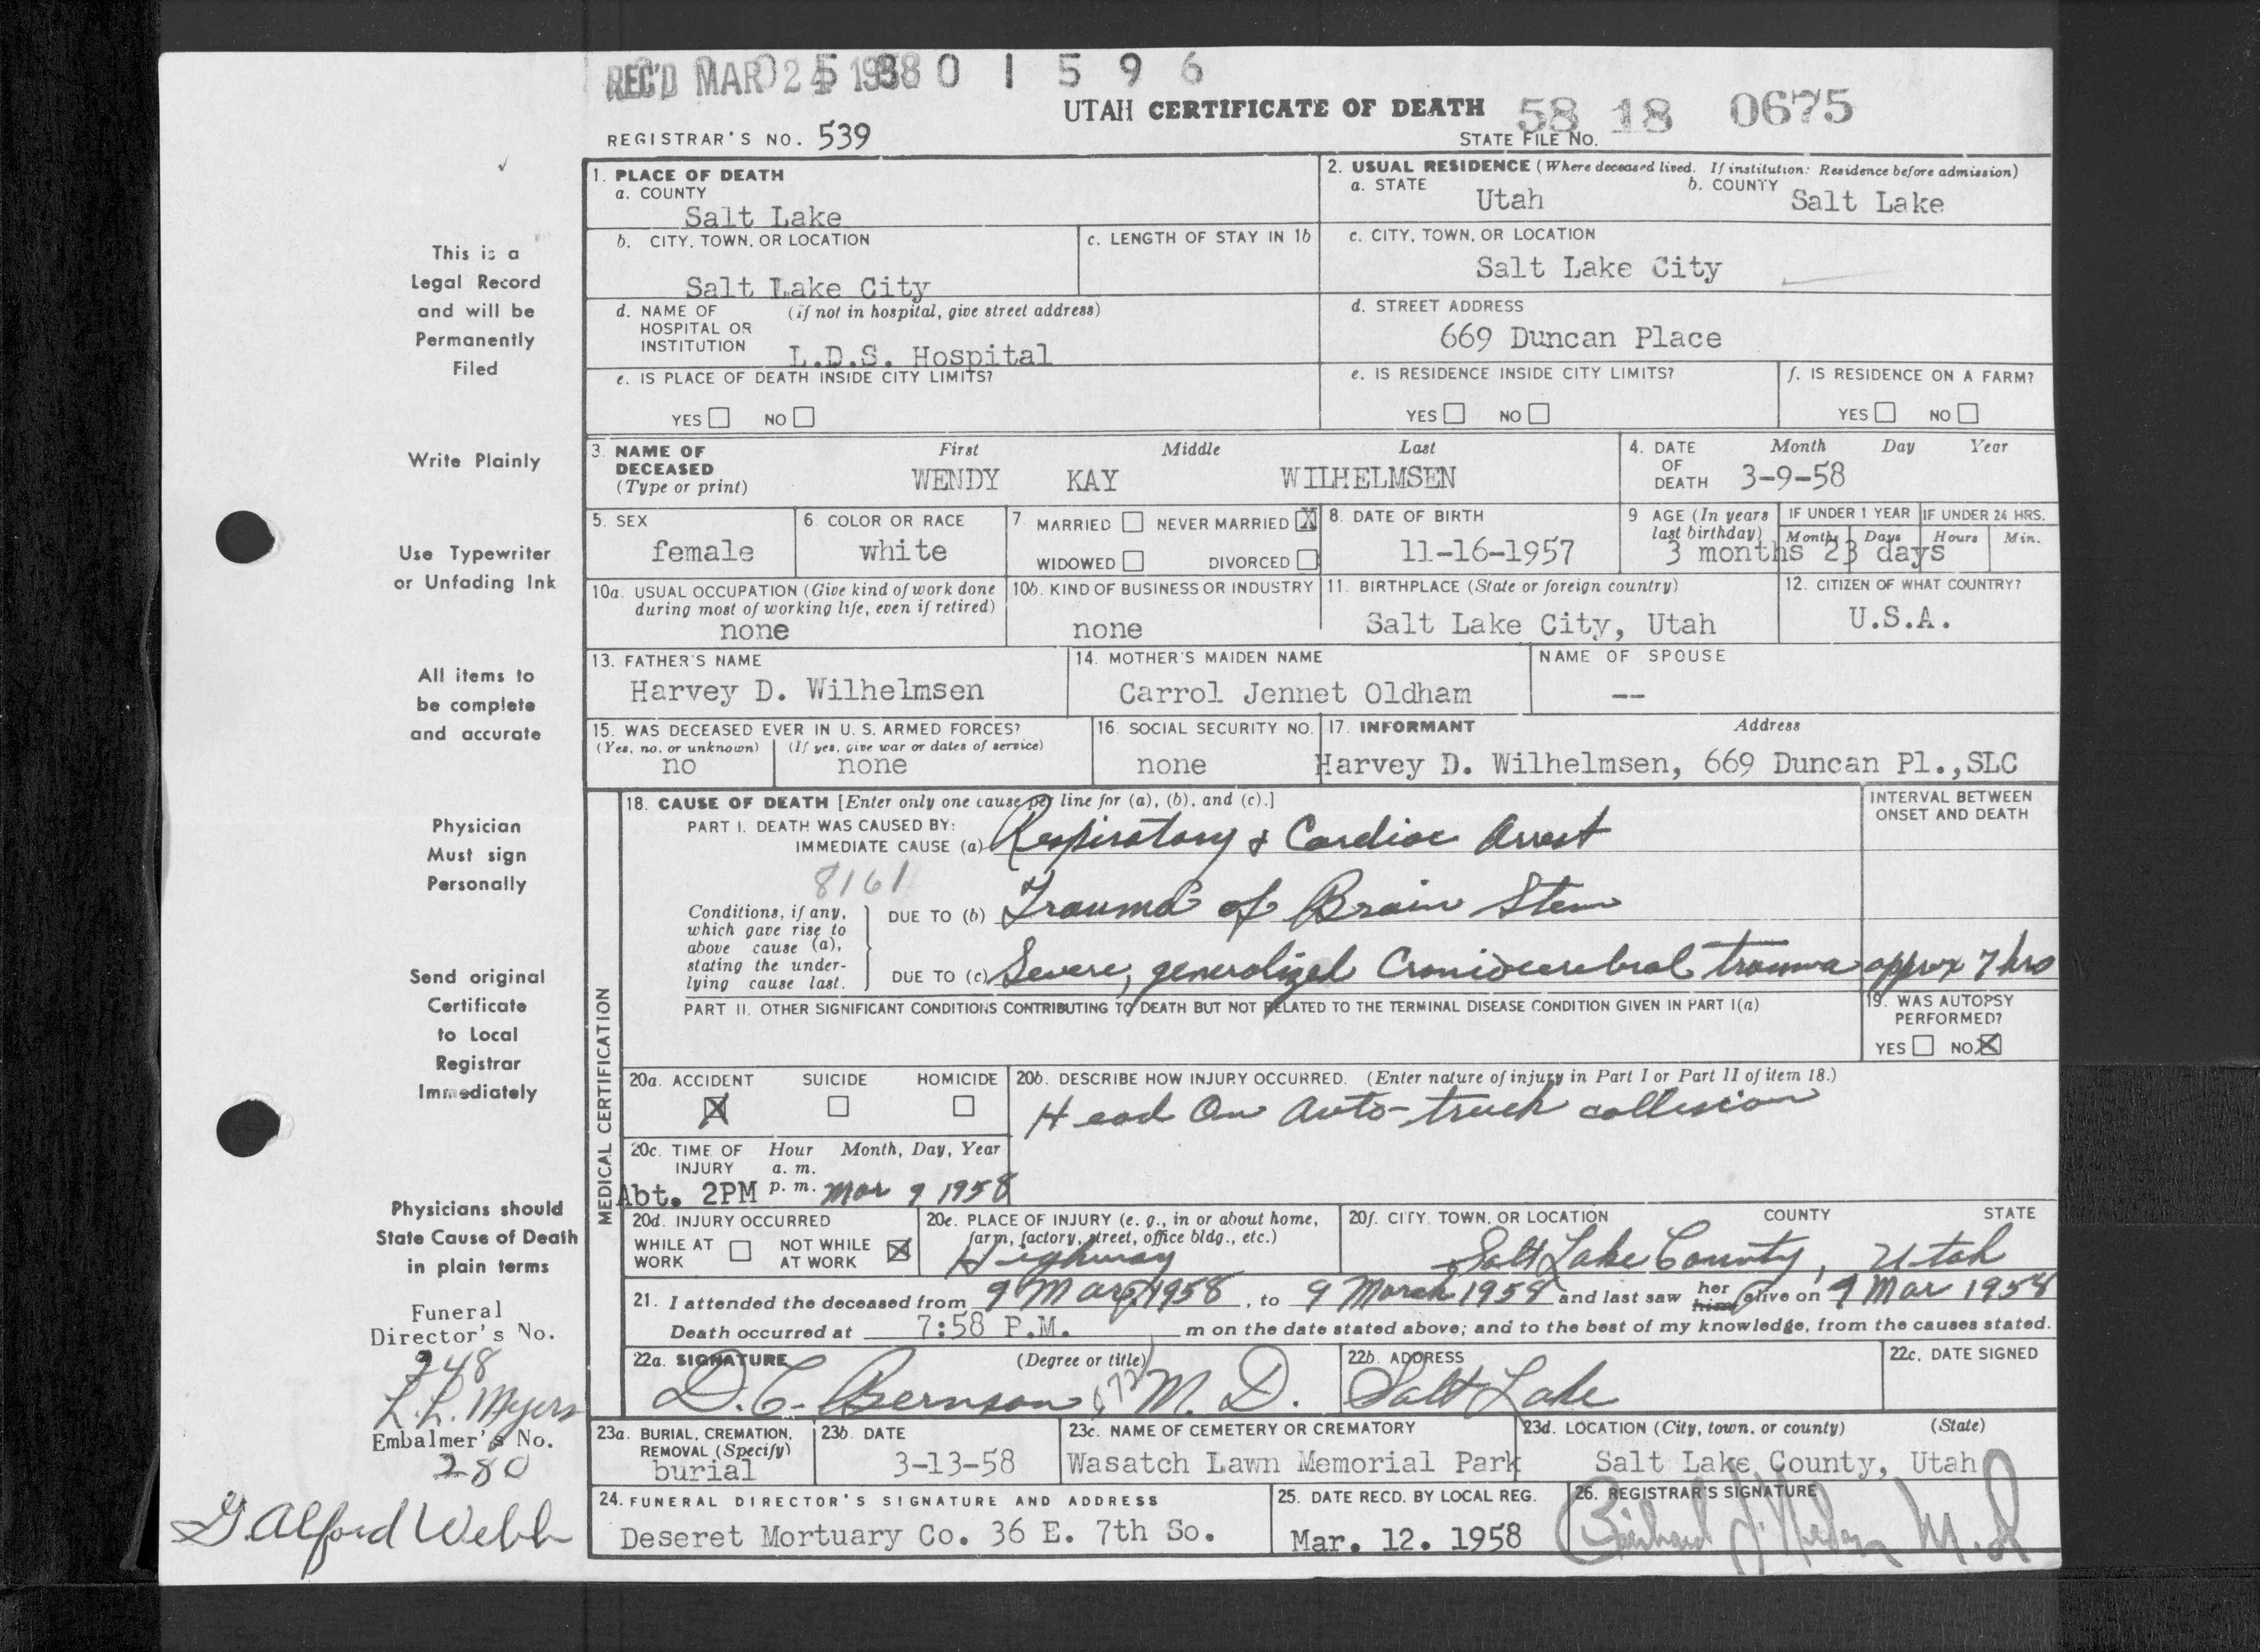 REC'D MAR 24 1958 0 1 5 9 6
UTAH CERTIFICATE OF DEATH 58 18 0675
REGISTRAR'S NO. 539
STATE FILE NO.
1. PLACE OF DEATH
a. COUNTY
Salt Lake
2. USUAL RESIDENCE (Where deceased lived. If institution: Residence before admission)
a. STATE b. COUNTY
Utah Salt Lake
b. CITY, TOWN, OR LOCATION
Salt Lake City
c. LENGTH OF STAY IN 1b
c. CITY, TOWN, OR LOCATION
Salt Lake City
d. NAME OF HOSPITAL OR INSTITUTION (if not in hospital, give street address)
L.D.S. Hospital
d. STREET ADDRESS
669 Duncan Place
e. IS PLACE OF DEATH INSIDE CITY LIMITS?
YES NO
e. IS RESIDENCE INSIDE CITY LIMITS?
YES NO
f. IS RESIDENCE ON A FARM?
YES NO
3. NAME OF DECEASED (Type or print)
First Middle Last
WENDY KAY WILHELMSEN
4. DATE OF DEATH Month Day Year
3-9-58
5. SEX
female
6. COLOR OR RACE
white
7. MARRIED NEVER MARRIED X
WIDOWED DIVORCED
8. DATE OF BIRTH
11-16-1957
9 AGE (In years last birthday) IF UNDER 1 YEAR IF UNDER 24 HRS.
Months Days Hours Min.
3 months 23 days
10a. USUAL OCCUPATION (Give kind of work done during most of working life, even if retired)
none
10b. KIND OF BUSINESS OR INDUSTRY
none
11. BIRTHPLACE (State or foreign country)
Salt Lake City, Utah
12. CITIZEN OF WHAT COUNTRY?
U.S.A.
13. FATHER'S NAME
Harvey D. Wilhelmsen
14. MOTHER'S MAIDEN NAME
Carrol Jennet Oldham
NAME OF SPOUSE
--
15. WAS DECEASED EVER IN U. S. ARMED FORCES?
(Yes, no, or unknown) (If yes, give war or dates of service)
no none
16. SOCIAL SECURITY NO.
none
17. INFORMANT Address
Harvey D. Wilhelmsen, 669 Duncan Pl.,SLC
MEDICAL CERTIFICATION
18. CAUSE OF DEATH [Enter only one cause per line for (a), (b), and (c).]
INTERVAL BETWEEN ONSET AND DEATH
PART I. DEATH WAS CAUSED BY:
IMMEDIATE CAUSE (a) Respiratory & Cardiac Arrest
8161
Conditions, if any, which gave rise to above cause (a), stating the underlying cause last.
DUE TO (b) Trauma of Brain Stem
DUE TO (c) Severe, generalized Craniocerebral trauma approx 7 hrs
PART II. OTHER SIGNIFICANT CONDITIONS CONTRIBUTING TO DEATH BUT NOT RELATED TO THE TERMINAL DISEASE CONDITION GIVEN IN PART I(a)
19. WAS AUTOPSY PERFORMED?
YES NO X
20a. ACCIDENT SUICIDE HOMICIDE
X
20b. DESCRIBE HOW INJURY OCCURRED. (Enter nature of injury in Part I or Part II of item 18.)
Head On Auto-truck collision
20c. TIME OF INJURY Hour Month, Day, Year
a. m.
Abt. 2PM p. m. Mar 9 1958
20d. INJURY OCCURRED
WHILE AT WORK NOT WHILE AT WORK X
20e. PLACE OF INJURY (e. g., in or about home, farm, factory, street, office bldg., etc.)
Highway
20f. CITY, TOWN, OR LOCATION COUNTY STATE
Salt Lake County, Utah
21. I attended the deceased from 9 Mar, 1958, to 9 March 1958 and last saw her him alive on 9 Mar 1958
Death occurred at 7:58 P.M. m on the date stated above; and to the best of my knowledge, from the causes stated.
22a. SIGNATURE (Degree or title)
D. C. Bernson, M. D.
22b. ADDRESS
Salt Lake
22c. DATE SIGNED
23a. BURIAL, CREMATION, REMOVAL (Specify)
burial
23b. DATE
3-13-58
23c. NAME OF CEMETERY OR CREMATORY
Wasatch Lawn Memorial Park
23d. LOCATION (City, town, or county) (State)
Salt Lake County, Utah
24. FUNERAL DIRECTOR'S SIGNATURE AND ADDRESS
Deseret Mortuary Co. 36 E. 7th So.
25. DATE RECD. BY LOCAL REG.
Mar. 12. 1958
26. REGISTRAR'S SIGNATURE
M.D.
This is a
Legal Record
and will be
Permanently
Filed
Write Plainly
Use Typewriter
or Unfading Ink
All items to
be complete
and accurate
Physician
Must sign
Personally
Send original
Certificate
to Local
Registrar
Immediately
Physicians should
State Cause of Death
in plain terms
Funeral
Director's No.
248
L.L. Myers
Embalmer's No.
280
G. Alford Webb